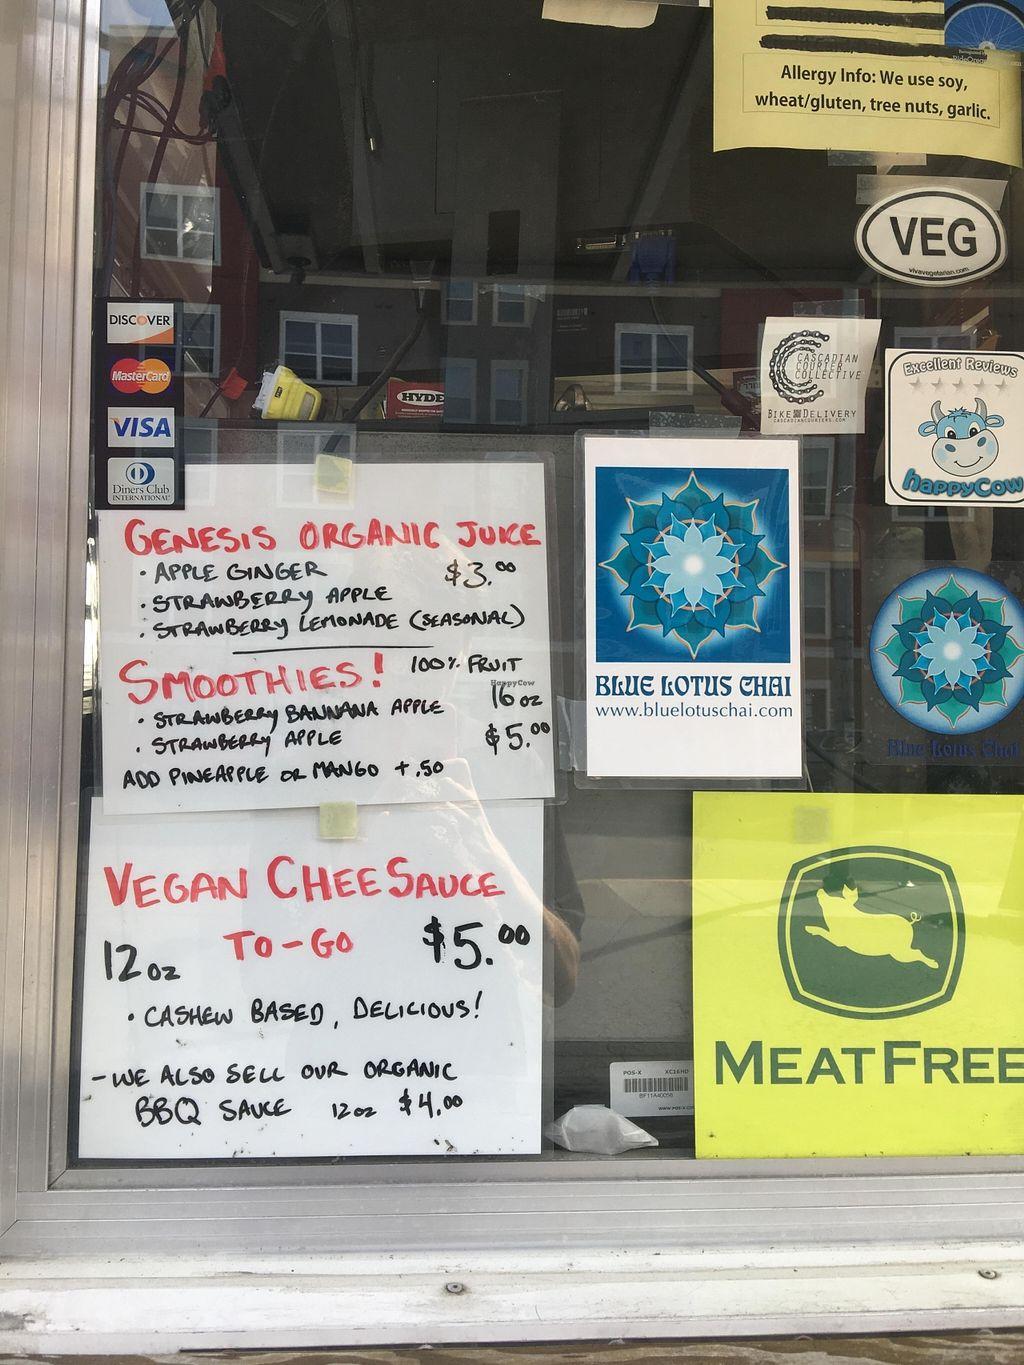 Allergy Info: We use soy,
wheat/gluten, tree nuts, garlic.
VEG
vivavegetarian.com
DISCOVER
MasterCard
VISA
Diners Club
INTERNATIONAL
HYDE
CASCADIAN
COURIER
COLLECTIVE
BIKE DELIVERY
CASCADIANCOURIERS.COM
Excellent Reviews
happyCow
GENESIS ORGANIC JUICE
• APPLE GINGER $3.00
• STRAWBERRY APPLE
• STRAWBERRY LEMONADE (SEASONAL)
SMOOTHIES! 100% FRUIT
HappyCow
• STRAWBERRY BANNANA APPLE 16 oz
• STRAWBERRY APPLE $5.00
ADD PINEAPPLE OR MANGO +.50
BLUE LOTUS CHAI
www.bluelotuschai.com
Blue Lotus Chai
VEGAN CHEESAUCE
TO-GO
12 oz $5.00
• CASHEW BASED, DELICIOUS!
- WE ALSO SELL OUR ORGANIC
BBQ SAUCE 12 oz $4.00
MEAT FREE
POS-X XC16HD
BF11A40056